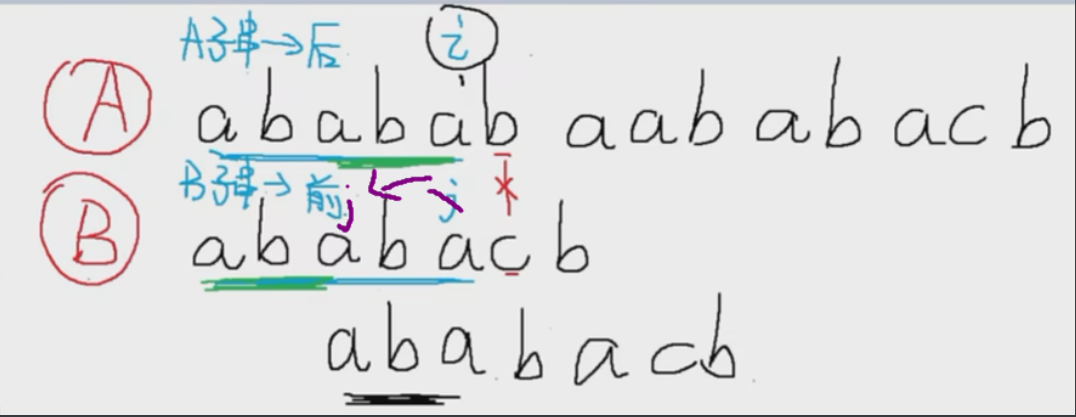 A子串→后 i
A ababab aab ab acb
B子串→前 j j
B ababacb
ababacb